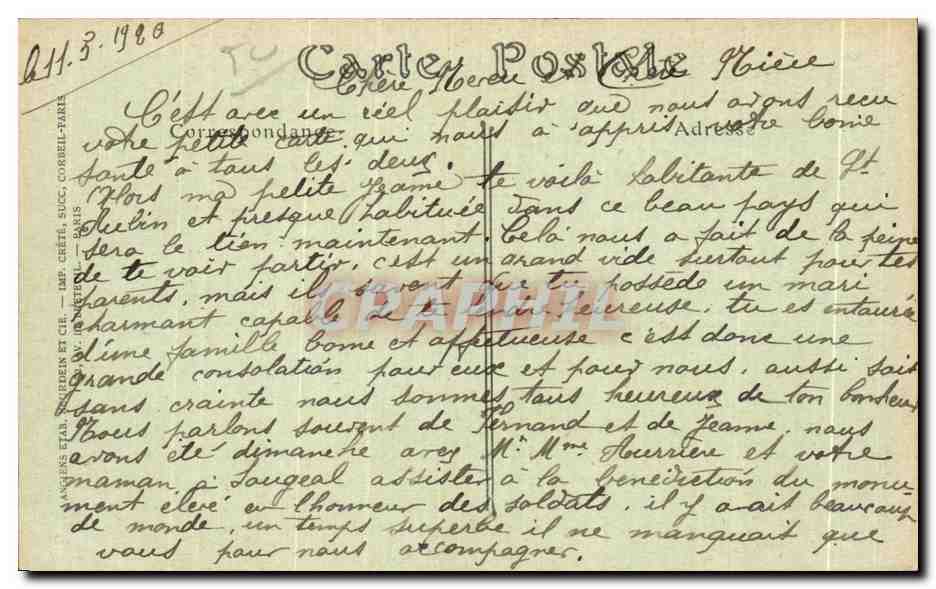 le 11.5.1920
Carte Postale
Chère Neveu et Chère Nièce
C'est avec un réel plaisir que nous avons recu
Correspondance
Adresse
votre petite carte qui nous à appris votre bonne
santé à tous les deux.
Alors ma petite Jeanne te voilà habitante de St
Aubin et presque habituée dans ce beau pays qui
sera le tien maintenant. Celà nous a fait de la peine
de te voir partir, c'est un grand vide surtout pour tes
parents, mais ils savent que tu possède un mari
charmant capable de te rendre heureuse, tu es entourée
d'une famille bonne et affectueuse c'est donc une
grande consolation pour eux et pour nous, aussi sois
sans crainte nous sommes tous heureux de ton bonheur
Nous parlons souvent de Fernand et de Jeanne, nous
avons été dimanche avec Mr Mme Hurrière et votre
maman à Saugeal assister à la bénédiction du monu-
ment élevé en l'honneur des soldats, il y avait beaucoup
de monde, un temps superbe il ne manquait que
vous pour nous accompagner.
ANCIENS ETAB. NEURDEIN ET CIE. — IMP. CRÉTÉ, SUCC, CORBEIL-PARIS
— PARIS
CPAPHIL